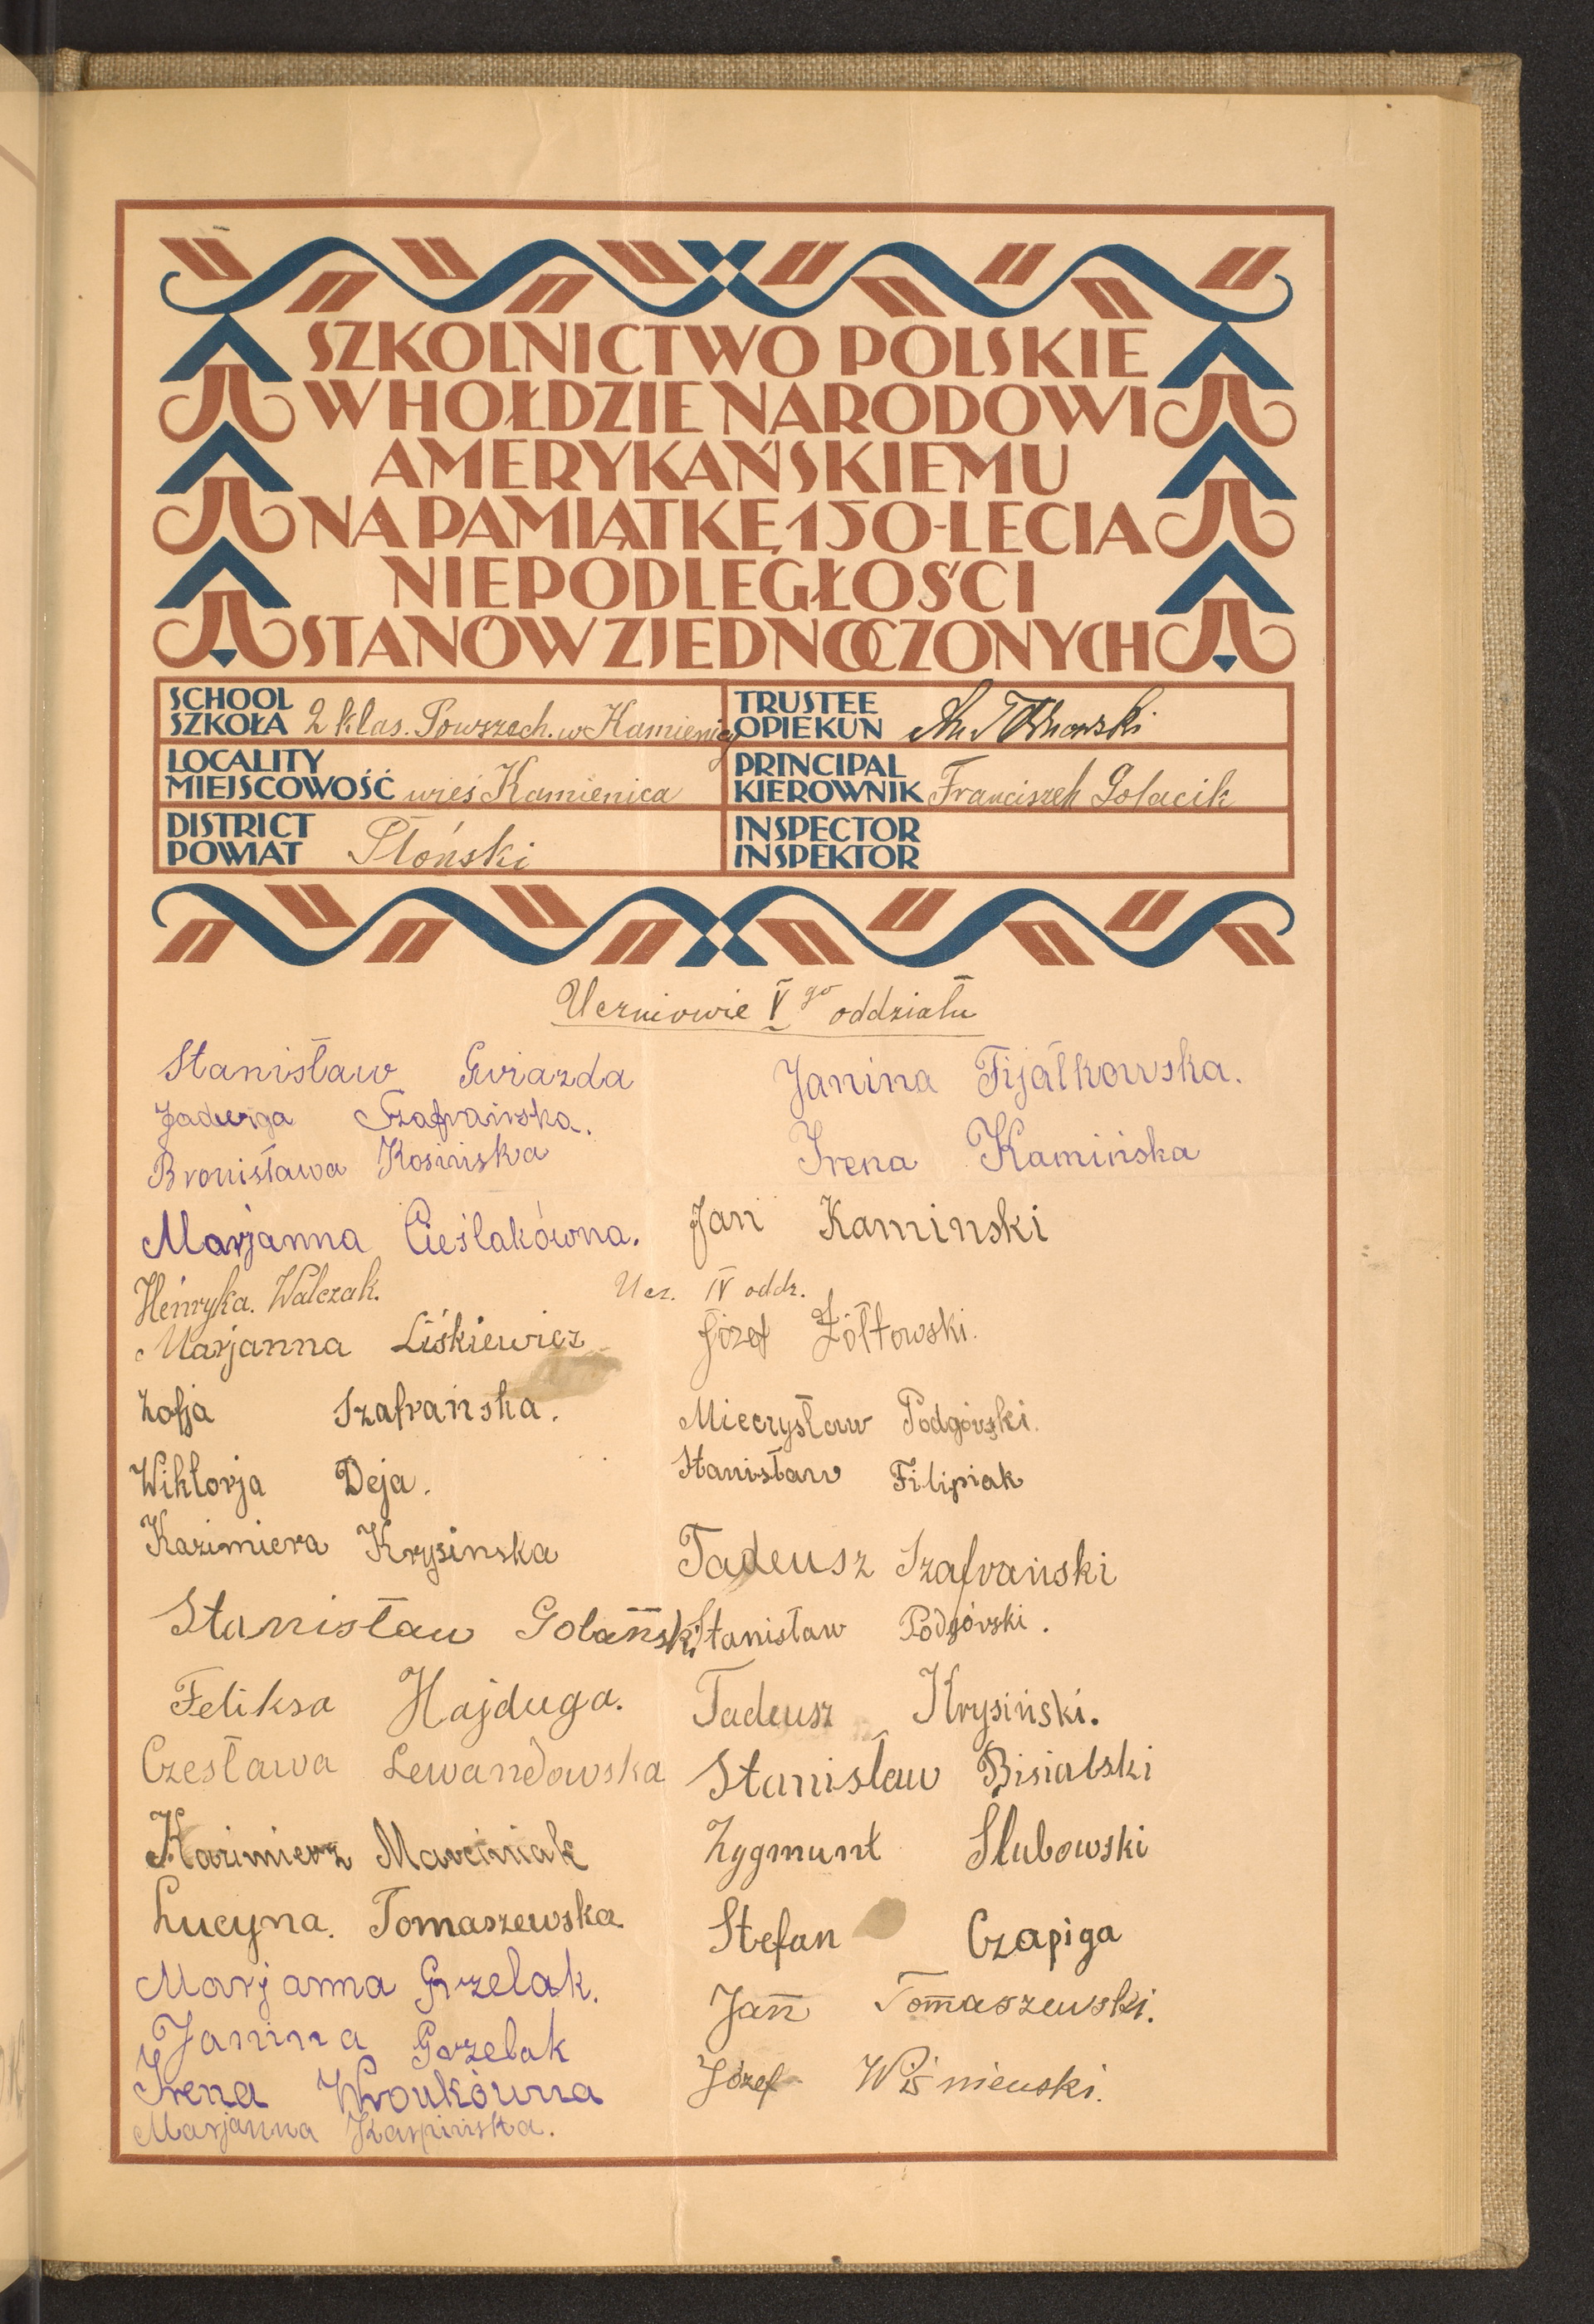 SZKOLNICTWO POLSKIE
W HOŁDZIE NARODOWI
AMERYKAŃSKIEMU
NA PAMIĄTKĘ 150-LECIA
NIEPODLEGŁOŚCI
STANÓW ZJEDNOCZONYCH
SCHOOL
SZKOŁA 2 klas. Powszech. w Kamienicy
TRUSTEE
OPIEKUN
LOCALITY
MIEJSCOWOŚĆ wieś Kamienica
PRINCIPAL
KIEROWNIK Franciszek Golacik
DISTRICT
POWIAT Płoński
INSPECTOR
INSPEKTOR
Uczniowie V go oddziału
Stanisław Gwiazda
Jadwiga Szafrańska.
Bronisława Kosińska
Marjanna Cieślakówna.
Henryka. Walczak.
Marjanna Liśkiewicz
Zofja Szafrańska.
Wiktorja Deja.
Kazimiera Krysinska
Stanisław Golański
Feliksa Hajduga.
Czesława Lewandowska
Kazimierz Marciniak
Lucyna. Tomaszewska
Marjanna Grzelak.
Janina Grzelak
Irena Wronkówna
Marjanna Karpińska.
Janina Fijałkowska.
Irena Kamińska
Jan Kaminski
Ucz. IV oddz.
Józef Żółtowski.
Mieczysław Podgórski.
Stanisław Filipiak
Tadeusz Szafrański
Stanisław Podgórski.
Tadeusz Krysiński.
Stanisław Bisialski
Zygmunt Ślubowski
Stefan Czapiga
Jan Tomaszewski.
Józef Wiśniewski.